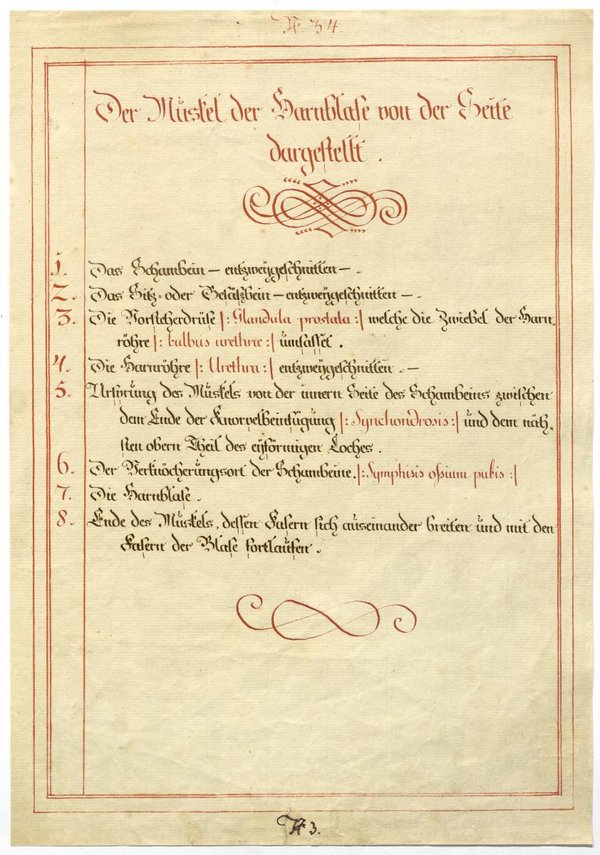 N. 34.
Der Muskel der Harnblase von der Seite
dargestellt.
1. Das Schambein — entzweygeschnitten —.
2. Das Sitz- oder Gesäßbein — entzweygeschnitten —.
3. Die Vorsteherdrüse |: Glandula prostata :| welche die Zwiebel der Harn¬
röhre |: bulbus urethræ :| umfasset.
4. Die Harnröhre |: Urethra :| entzweygeschnitten. —
5. Ursprung des Muskels von der innern Seite des Schambeins zwischen
dem Ende der Knorpelbeinfügung |: Synchondrosis :| und dem näch¬
sten obern Theil des eyförmigen Loches.
6. Der Verknöcherungsort der Schambeine. |: Symphisis ossium pubis :|
7. Die Harnblase.
8. Ende des Muskels, dessen Fasern sich auseinander breiten und mit den
Fasern der Blase fortlaufen.
N 3.